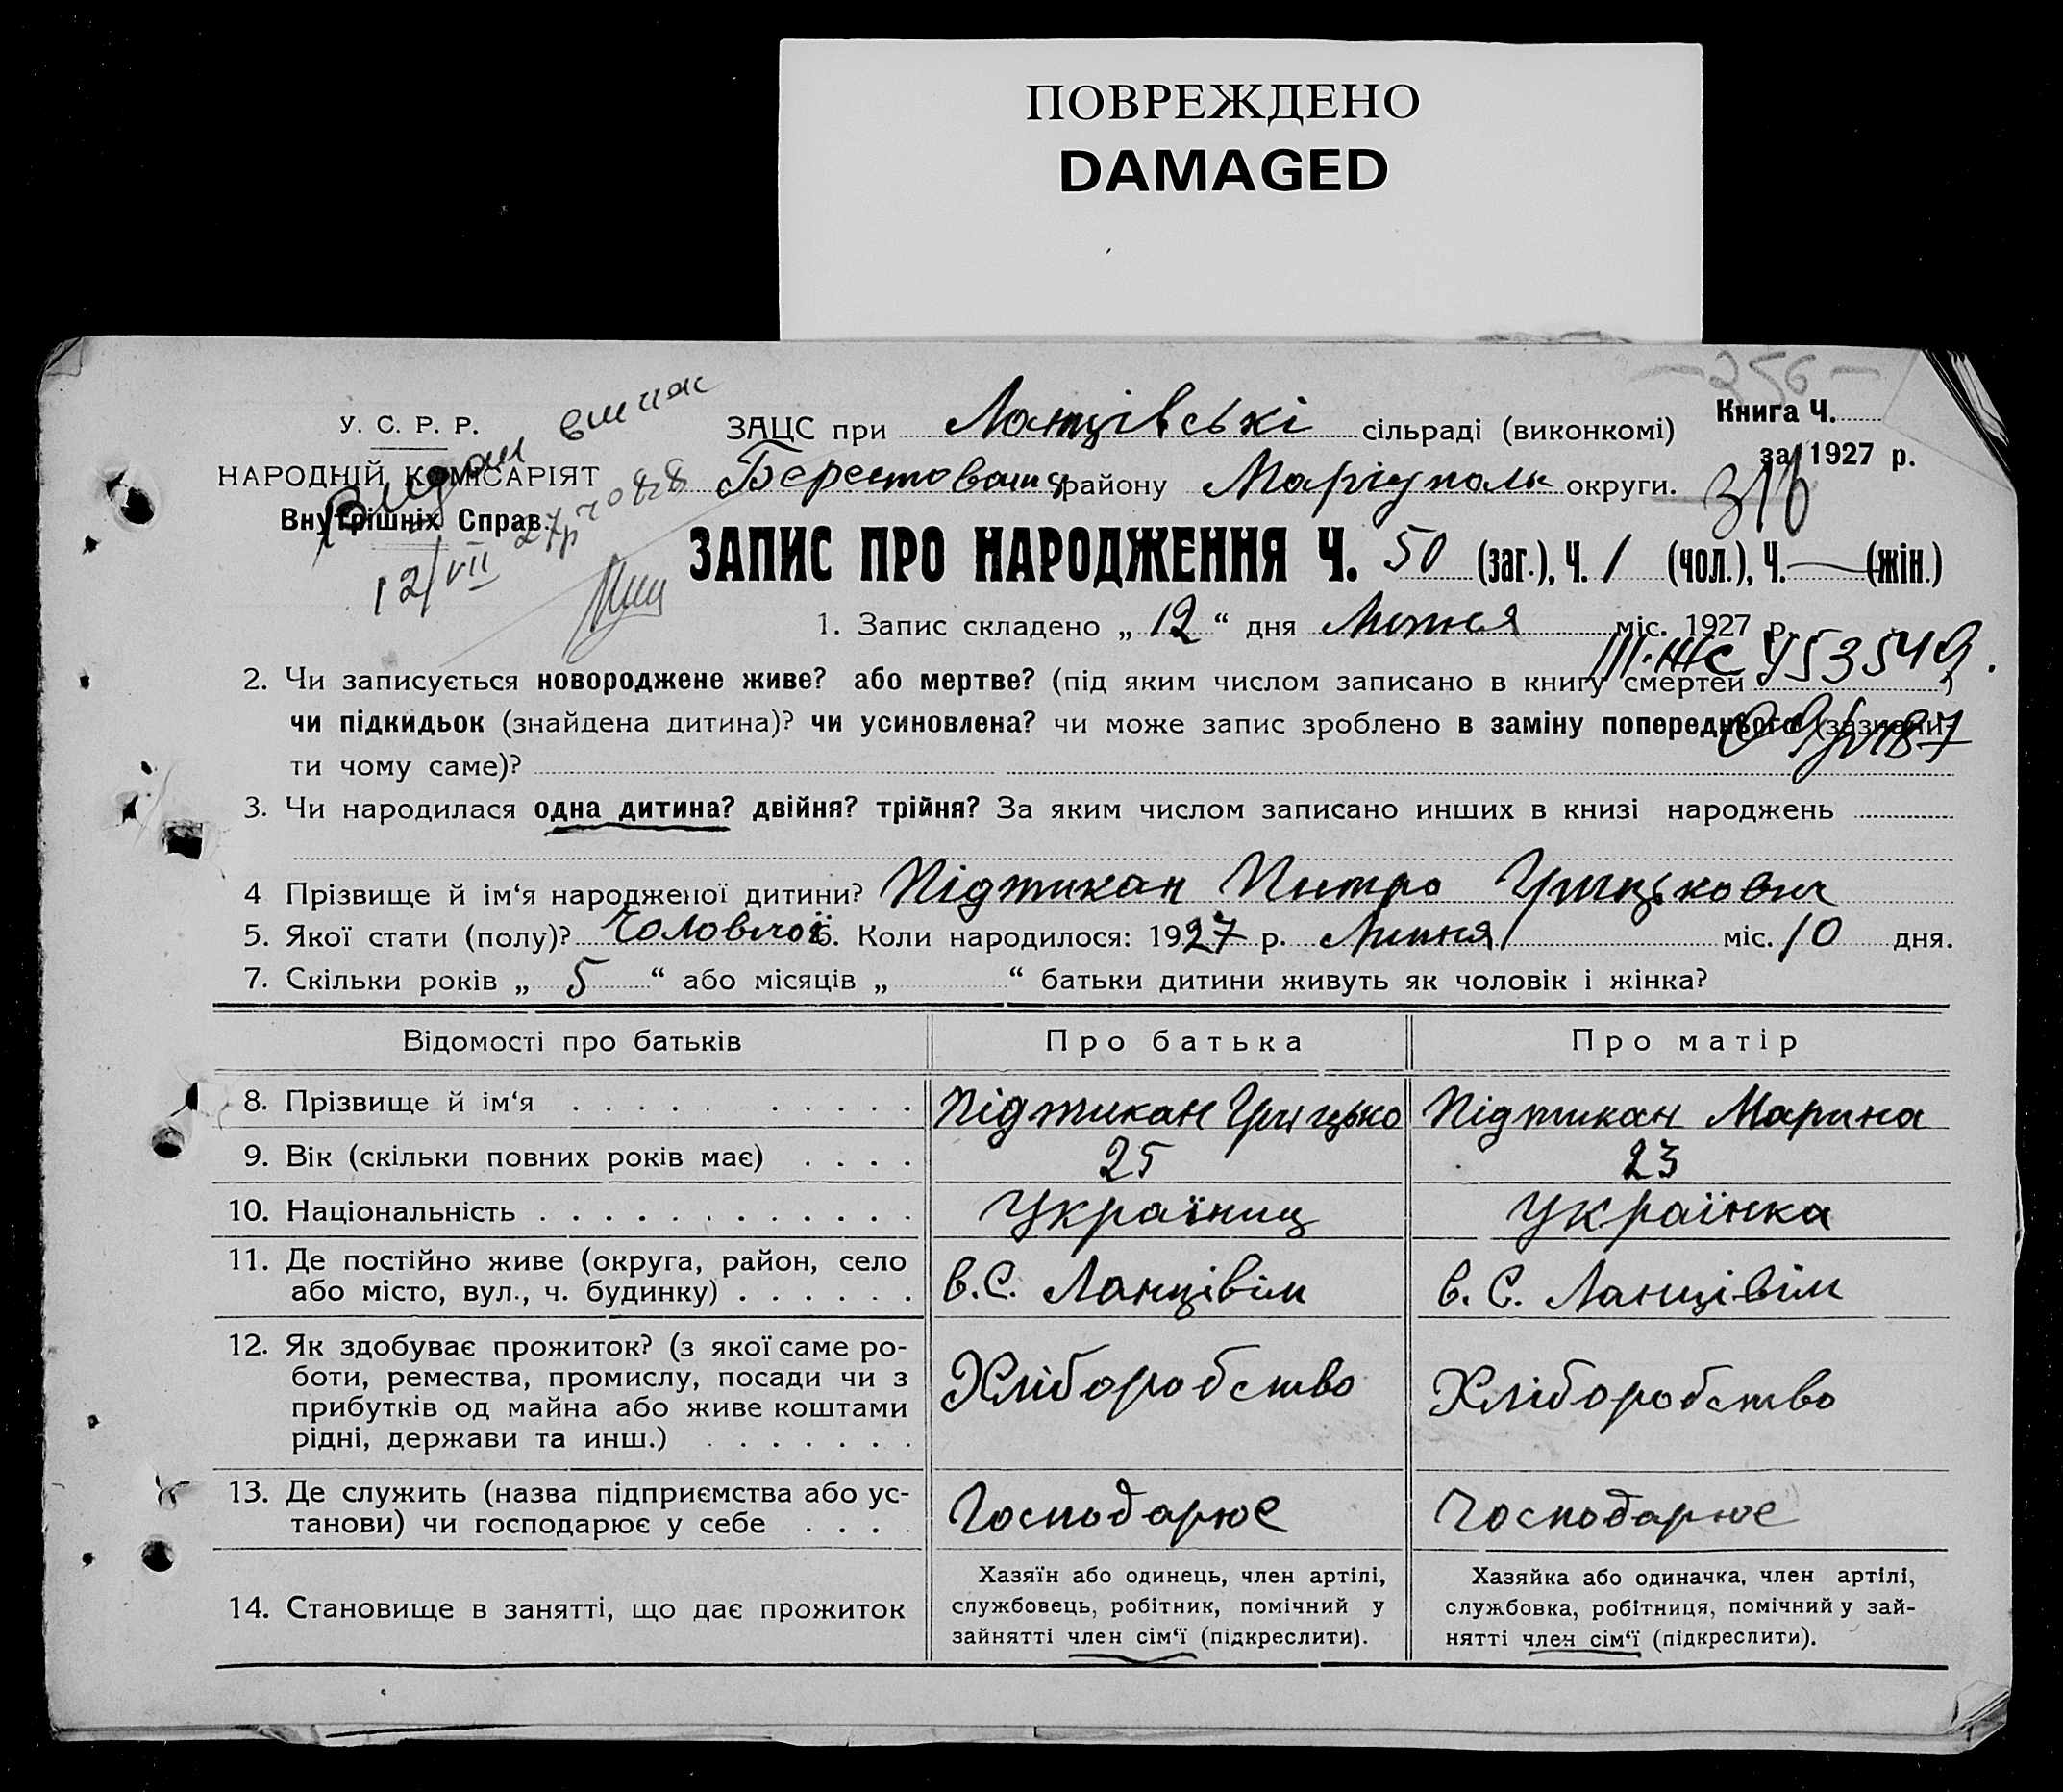 ПОВРЕЖДЕНО
DAMAGED
356
У. С. Р. Р.
НАРОДНІЙ КОМІСАРІЯТ
Внутрішніх Справ.
12/VII 27р
ЗАЦС при Ланцівські сільраді (виконкомі)
Книга Ч.
за 1927 р.
316
району Маріуполь округи.
ЗАПИС ПРО НАРОДЖЕННЯ Ч. 50 (заг.), Ч. 1 (чол.), Ч. — (жін.)
1. Запис складено „ 12 “ дня Липня міс. 1927 р.
2. Чи записується новороджене живе? або мертве? (під яким числом записано в книгу смертей )
чи підкидьок (знайдена дитина)? чи усиновлена? чи може запис зроблено в заміну попереднього (зазначи-
ти чому саме)?
3. Чи народилася одна дитина? двійня? трійня? За яким числом записано инших в книзі народжень
4 Прізвище й ім‘я народженої дитини? Підтикан Питро Грицькович
5. Якої стати (полу)? Чоловічої 6. Коли народилося: 1927 р. Липня міс. 10 дня.
7. Скільки років „ 5 “ або місяців „ “ батьки дитини живуть як чоловік і жінка?
Відомості про батьків Про батька Про матір
8. Прізвище й ім‘я Підтикан Грицько Підтикан Марина
9. Вік (скільки повних років має) 25 23
10. Національність Україниц Українка
11. Де постійно живе (округа, район, село
або місто, вул., ч. будинку)
в.С. Ланцівім
в. С. Ланцівім
12. Як здобуває прожиток? (з якої саме ро-
боти, ремества, промислу, посади чи з
прибутків од майна або живе коштами
рідні, держави та инш.)
Хліборобство
Хліборобство
13. Де служить (назва підприємства або ус-
танови) чи господарює у себе
Господарює
Господарює
14. Становище в занятті, що дає прожиток
Хазяїн або одинець, член артілі,
службовець, робітник, помічний у
зайнятті член сім‘ї (підкреслити).
Хазяйка або одиначка, член артілі,
службовка, робітниця, помічний у зай-
нятті член сім‘ї (підкреслити).